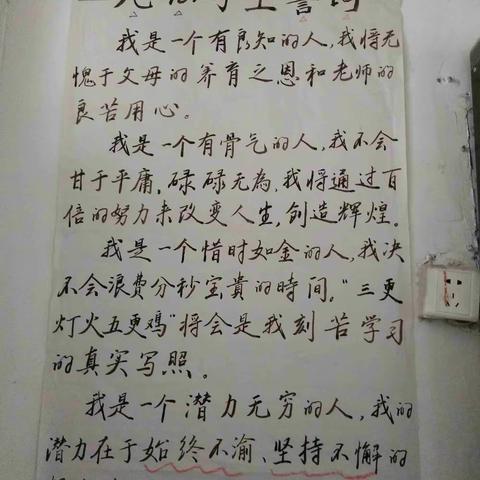 我是一个有良知的人,我将无
愧于父母的养育之恩和老师的
良苦用心。
我是一个有骨气的人,我不会
甘于平庸,碌碌无為,我将通过百
倍的努力来改变人生,创造辉煌。
我是一个惜时如金的人,我决
不会浪费分秒宝贵的時间。"三更
灯火五更鸡"将会是我刻苦学习
的真实写照。
我是一个潜力无穷的人,我的
潜力在于始终不渝、坚持不懈的